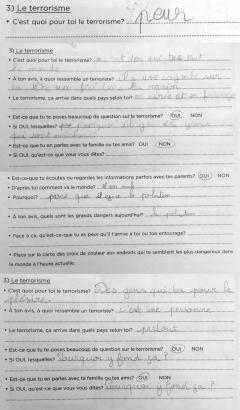 3) Le terrorisme
• C'est quoi pour toi le terrorisme? peur
3) Le terrorisme
• C'est quoi pour toi le terrorisme?
• À ton avis, à quoi ressemble un terroriste? Il a une cagoule sur
la tête un
• Le terrorisme, ça arrive dans quels pays selon toi? en
• Est-ce que tu te poses beaucoup de question sur le terrorisme? OUI NON
• Si OUI, lesquelles? pourquoi il y a des gens
qui sont
• Est-ce que tu en parles avec ta famille ou tes amis? OUI NON
• Si OUI, qu'est-ce que vous vous dites?
• Est-ce que tu écoutes ou regardes les informations parfois avec tes parents? OUI NON
• D'après toi comment va le monde?
• Pourquoi? parce que il y a de la polution
• À ton avis, quels sont les grands dangers aujourd'hui? la polution
• Face à ça, qu'est-ce que tu as peur qu'il t'arrive à toi ou ton entourage?
• Place sur la carte des croix de couleur aux endroits qui te semblent les plus dangereux dans
le monde à l'heure actuelle.
3) Le terrorisme
• C'est quoi pour toi le terrorisme? Des gens qui tue pour le
plésire.
• À ton avis, à quoi ressemble un terroriste? c'est une personne
• Le terrorisme, ça arrive dans quels pays selon toi? partout
• Est-ce que tu te poses beaucoup de question sur le terrorisme? OUI NON
• Si OUI, lesquelles? Pourquoi y fond ça?
• Est-ce que tu en parles avec ta famille ou tes amis? OUI NON
• Si OUI, qu'est-ce que vous vous dites? Pourquoi y fond ça?